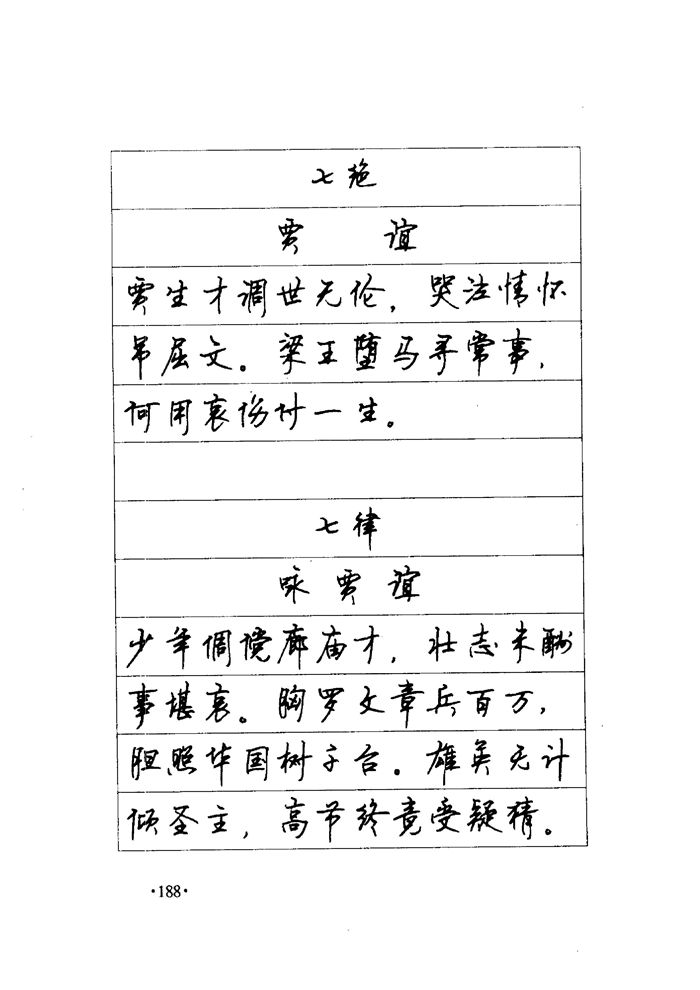 七绝
贾谊
贾生才调世无伦，哭泣情怀
吊屈文。梁王堕马寻常事，
何用哀伤付一生。
七律
咏贾谊
少年倜傥廊庙才，壮志未酬
事堪哀。胸罗文章兵百万，
胆照华国树千台。雄英无计
倾圣主，高节终竟受疑猜。
·188·